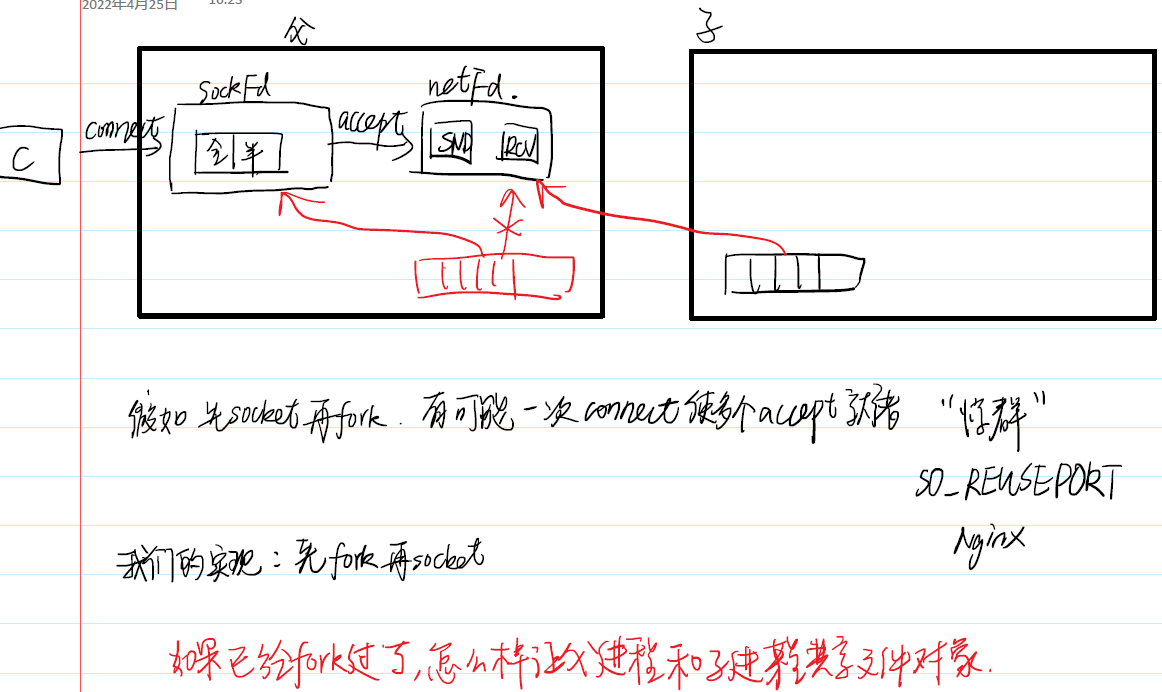 2022年4月25日 16:23
父
子
sockFd
netFd.
connect
accept
C
全 半
SND
RCV
假如先socket再fork. 有可能一次connect使多个accept就绪 “惊群”
SO_REUSEPORT
Nginx
我们的实现：先fork再socket
如果已经fork过了,怎么样让父进程和子进程共享文件对象.